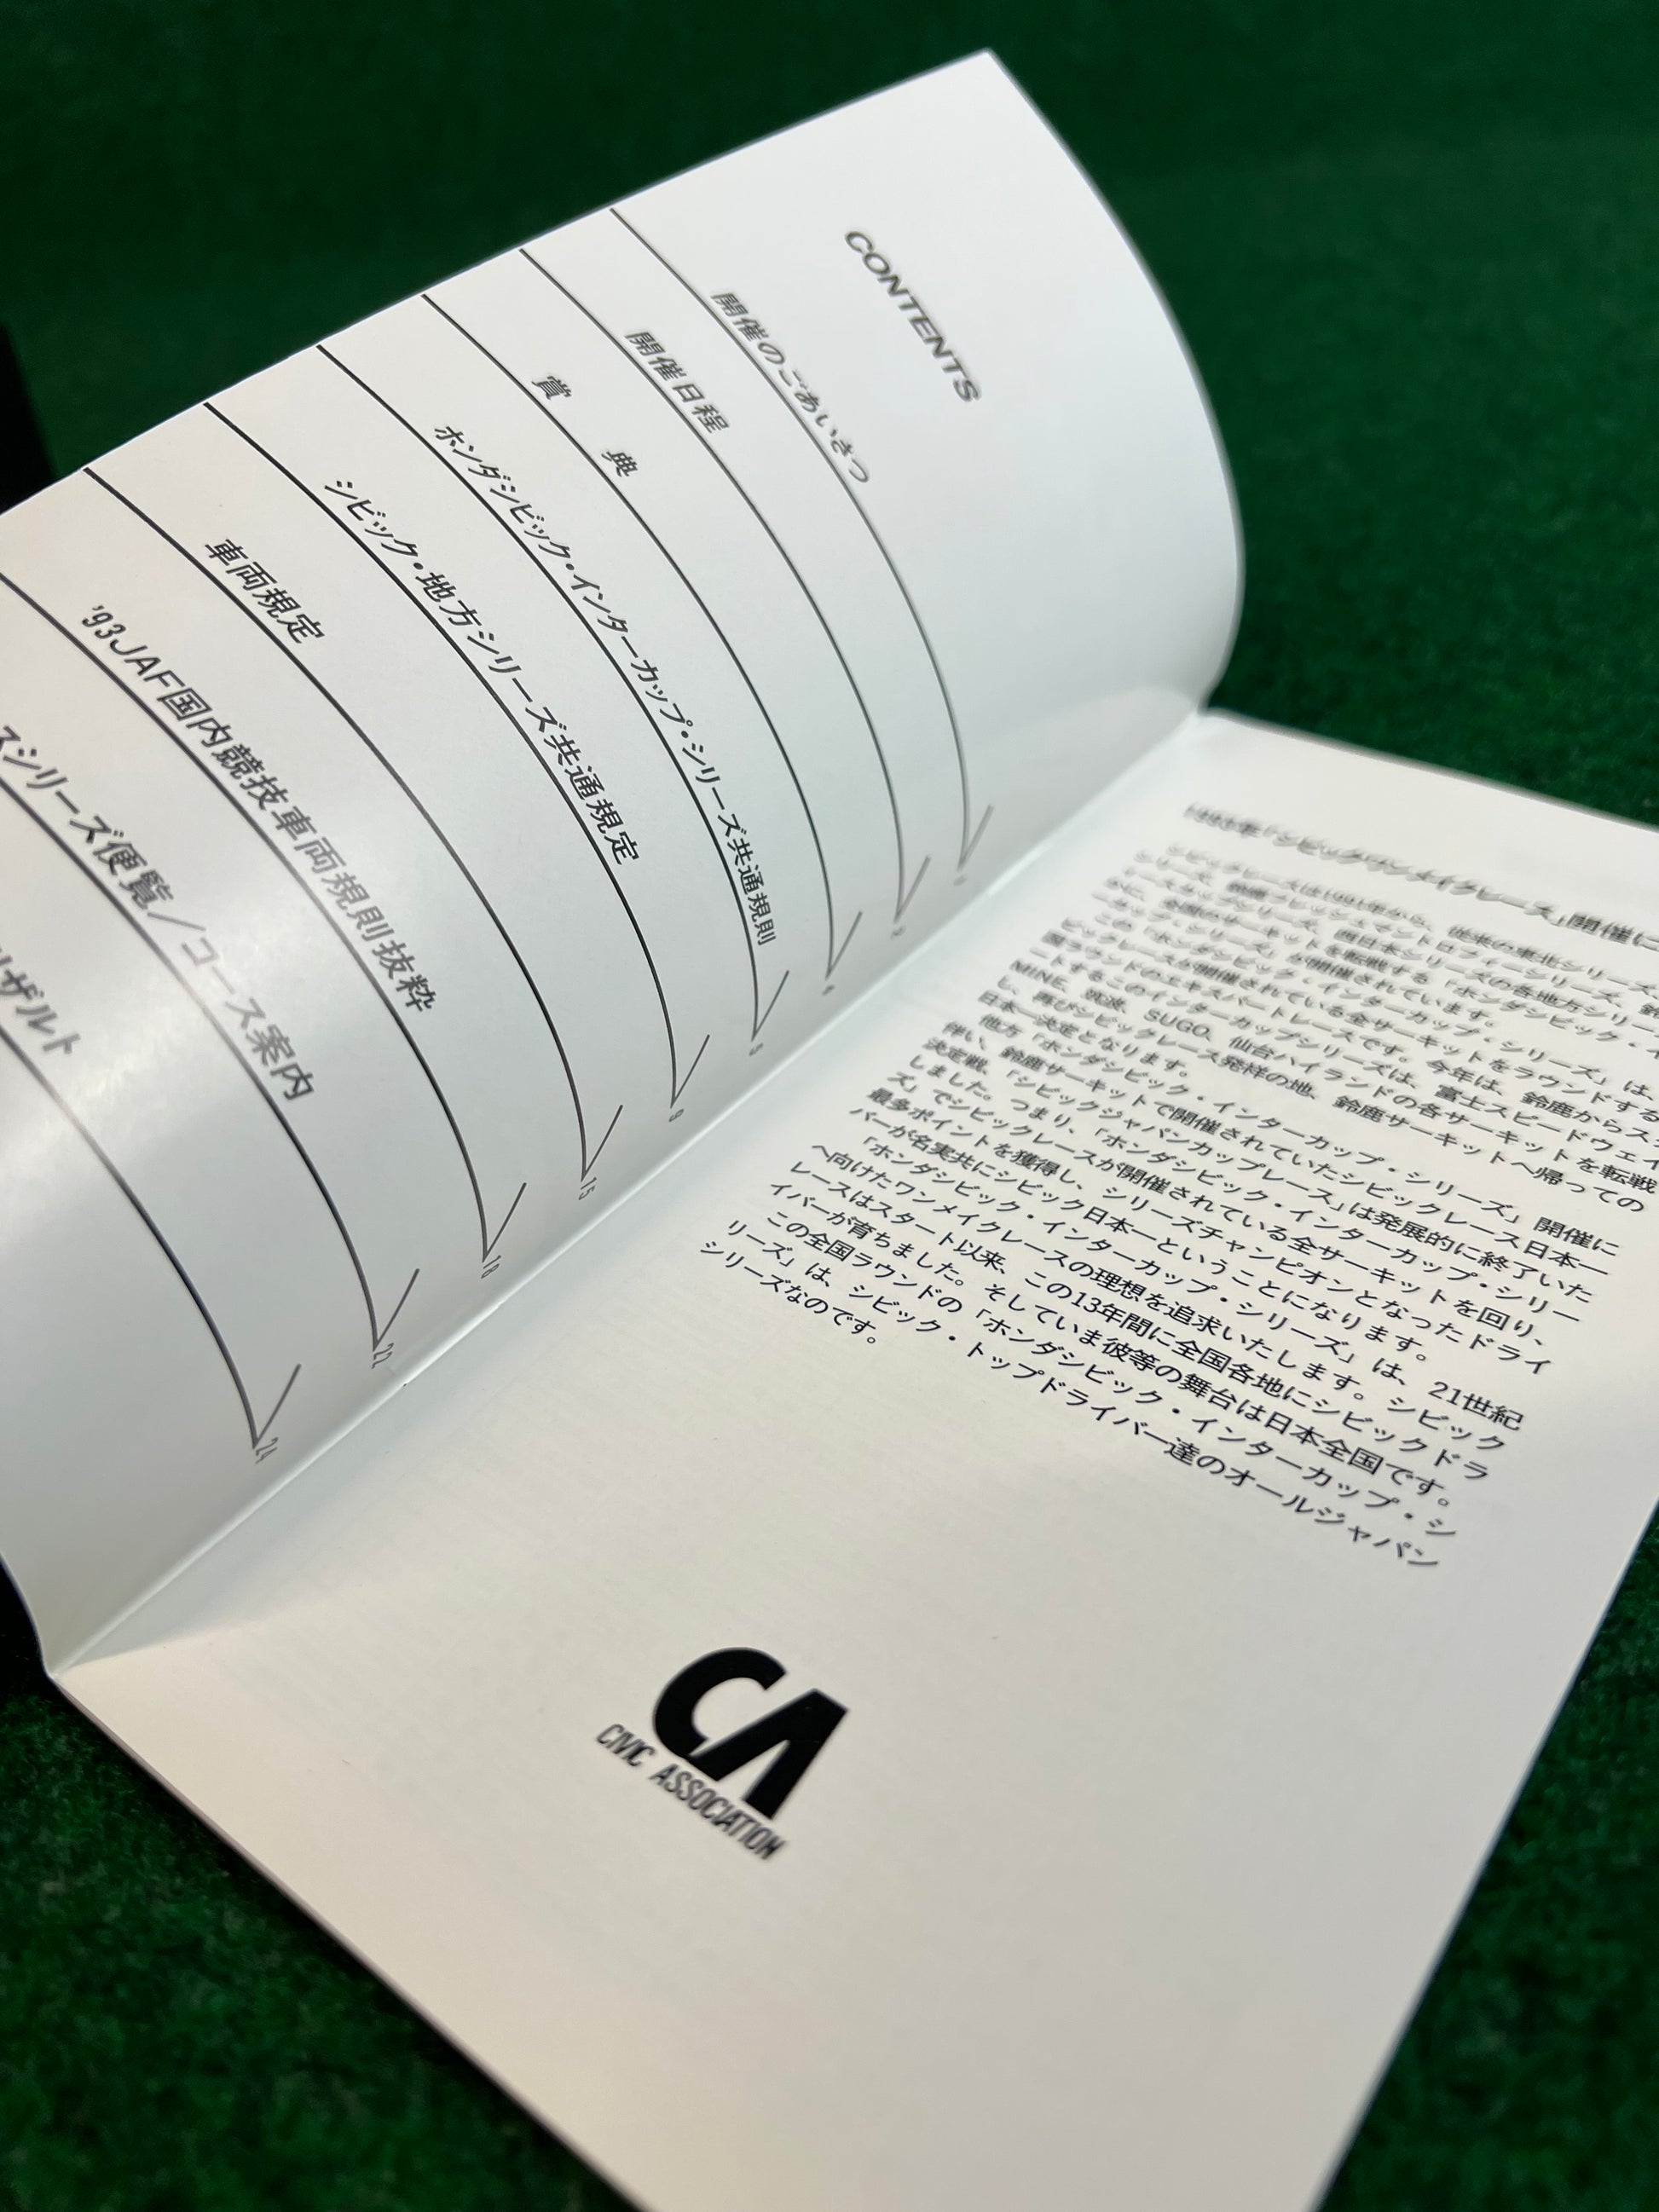 CONTENTS
開催のごあいさつ
開催日程
賞 典
ホンダシビック・インターカップ・シリーズ共通規則 5
シビック・地方シリーズ共通規定 9
車両規定 15
'93JAF国内競技車両規則抜粋 18
スシリーズ便覧/コース案内 22
リザルト 24
1993年「シビックワンメイクレース」開催に
シビックレースは1991年から、従来の東北シリーズ、
シリーズ、鈴鹿
西日本シリーズの各地方シリー
かに、全国のサーキットを転戦する「ホンダシビック・イ
ーカップ・シリーズ」が開催されています。
この「ホンダシビック・インターカップ・シリーズ」は、
ビックレースが開催されている全サーキットをラウンドする
国ラウンドのエキスパートレースです。今年は、鈴鹿からスタ
ートするこのインターカップシリーズは、富士スピードウェイ
MINE、筑波、SUGO、仙台ハイランドの各サーキットを転戦
し、再びシビックレース発祥の地、鈴鹿サーキットへ帰っての
日本一決定となります。
他方「ホンダシビック・インターカップ・シリーズ」開催に
伴い、鈴鹿サーキットで開催されていたシビックレース日本一
決定戦、「シビックジャパンカップレース」は発展的に終了いた
しました。つまり、「ホンダシビック・インターカップ・シリー
ズ」でシビックレースが開催されている全サーキットを回り、
最多ポイントを獲得し、シリーズチャンピオンとなったドライ
バーが名実共にシビック日本一ということになります。
「ホンダシビック・インターカップ・シリーズ」は、21世紀
へ向けたワンメイクレースの理想を追求いたします。シビック
レースはスタート以来、この13年間に全国各地にシビックドラ
イバーが育ちました。そしていま彼等の舞台は日本全国です。
この全国ラウンドの「ホンダシビック・インターカップ・シ
リーズ」は、シビック・トップドライバー達のオールジャパン
シリーズなのです。
CA
CIVIC ASSOCIATION